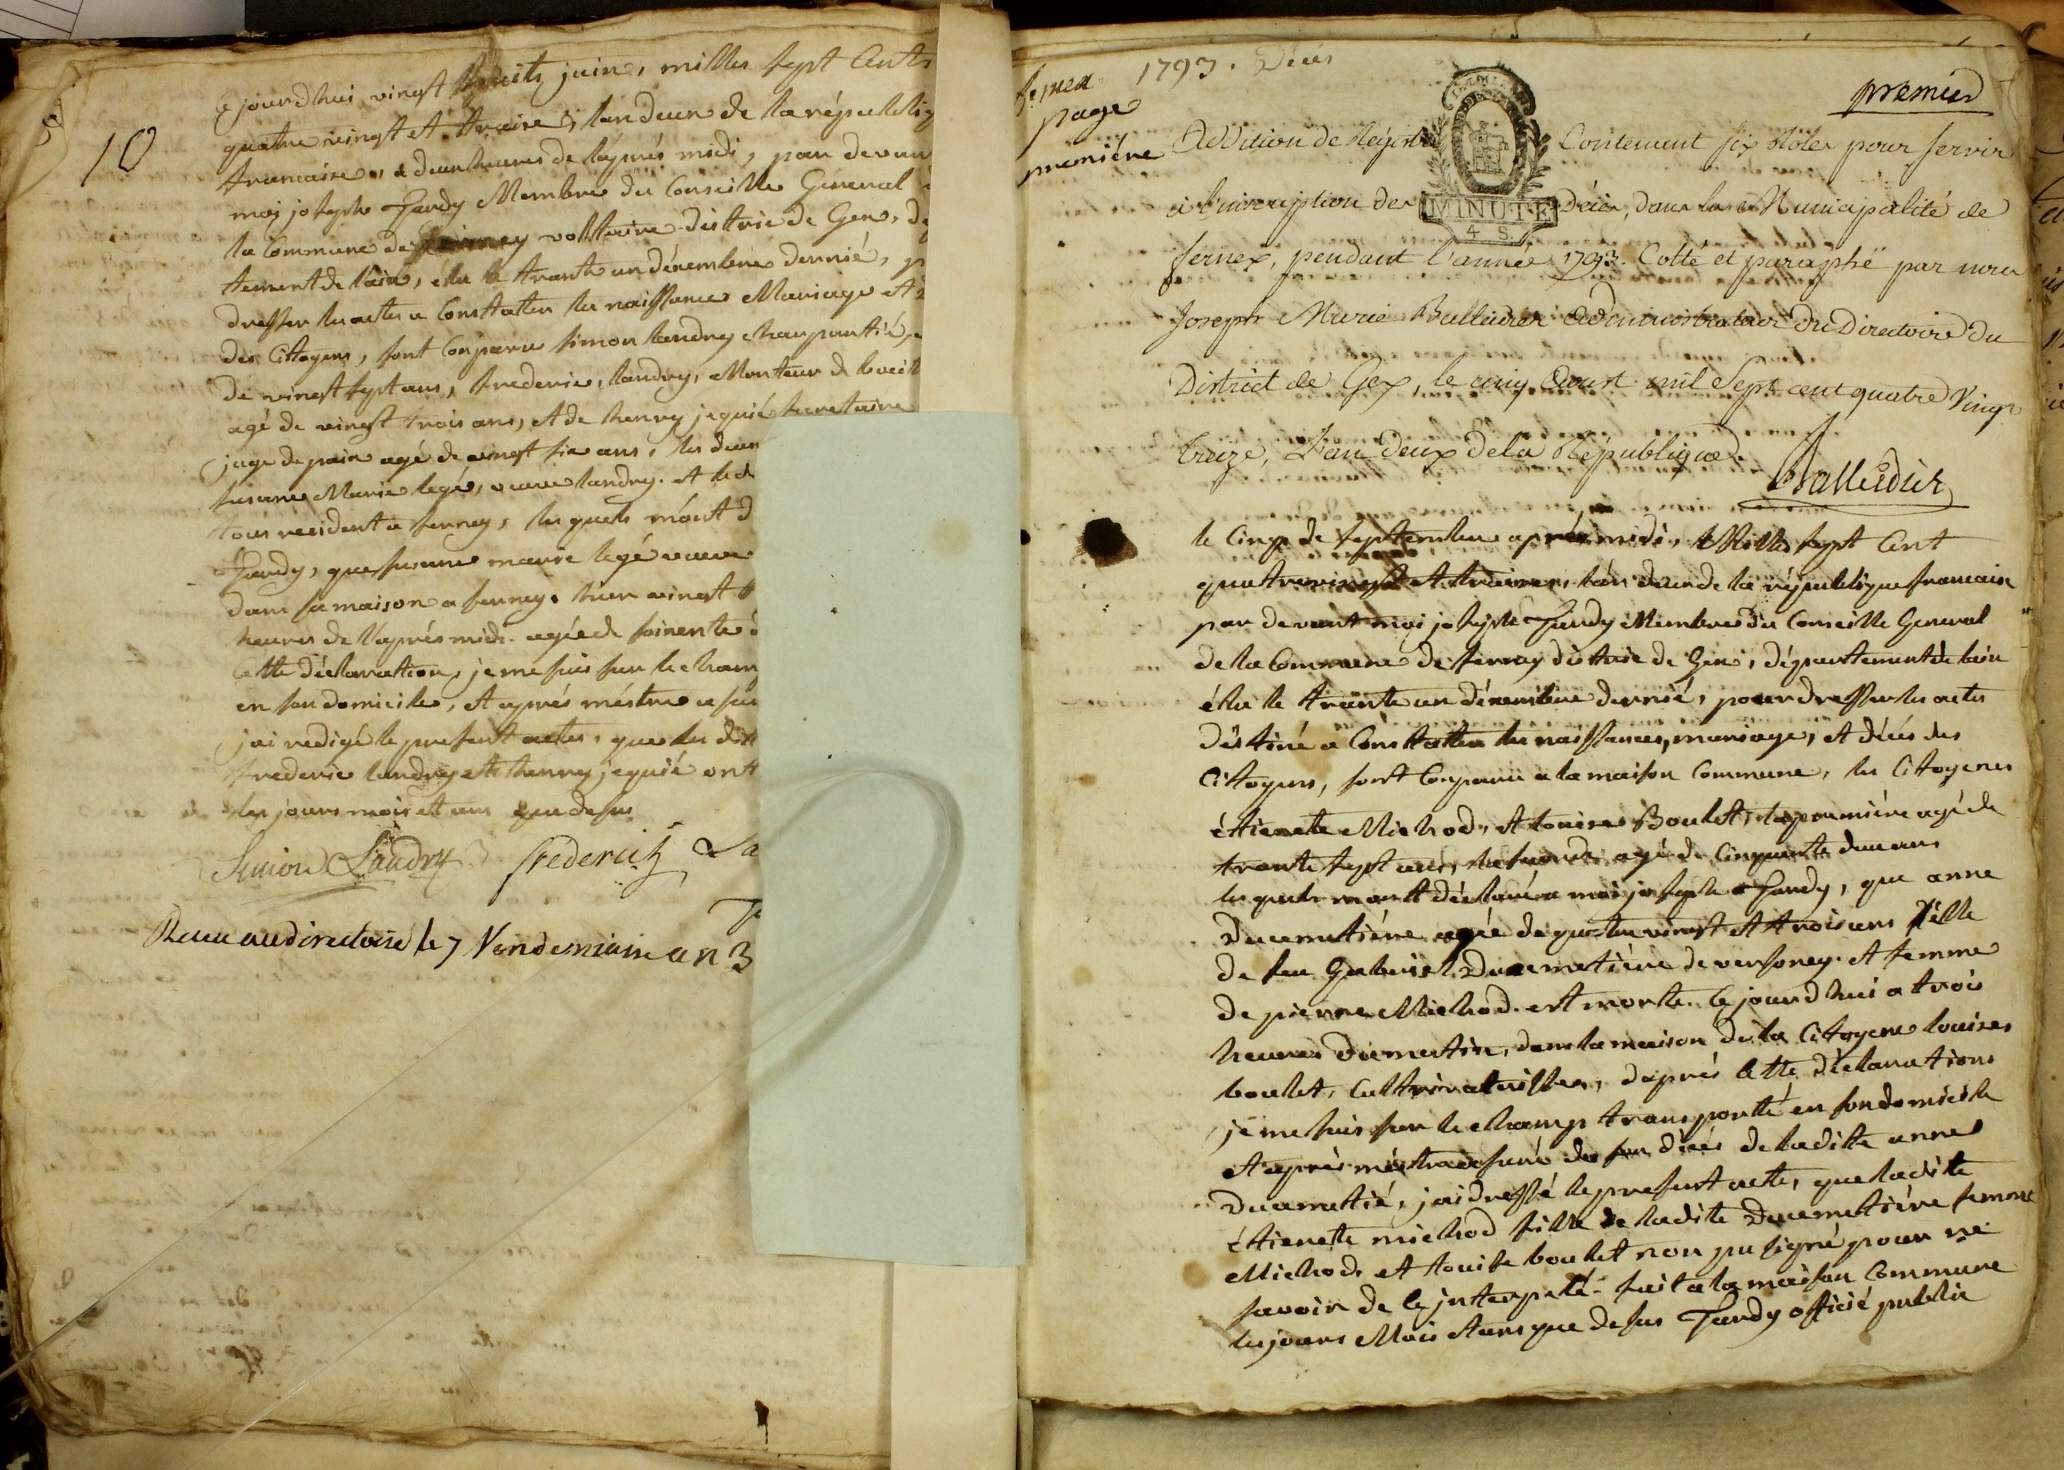 10
Cejourdhui vingt huits juin, milles sept Cents
quatre vingt et traise, landeux de la républiq
francaise, a deux heures de laprés midi, par devan
moi joseph Jandy Membre du Conseille General
la Commune de ferney volttaire distric de Gex, de
tement de lain, élu le trante un décembre dernié, p
dresser les actes a Constatter les naissances Mariage et
des Cittoyens, sont Conparu simon landry charpantié,
de vingt sept ans, frederic landry, Monteur de boeit
agé de vingt trois ans, et de henry jequié secretaire
juge de paix agé de vingt six ans, les deux
susanne Marie legé, veuve landry. et le d
tous resident a ferney, les quels m'ont d
Jandy, que susanne marie legé veuve
dans sa maison a ferney, hier vingt
heures de l'aprés midi. agée de soixente
Cette déclaration, je me suis sur le cham
en son domicile, et aprés méstre assu
jai redigé le present actes, que les dit
frederic landry et henry jequié ont
les jours mois et ans que desus
Simon Landry frederich La
Ja
Reçu au directoire le 7 Vendemiaire an 3
1793. Décès
fernex
page
premiére
premier
Addition de Régistre Contenant six Roles pour servir
à l'inscription des Décès, dans la Municipalité de
MINUTE
4 S.
fernex, pendant l'année 1793. Cotté et paraphé par nous
Joseph Marie Balleidier administrateur du Directoire du
District de Gex, le cinq Aoust mil Sept cent quatre Vingt
treize, L'an deux de la République.
Balleidier
le Cinq de septembre aprés midi, Milles sept Cent
quatrevingt et traises, l'an deux de la république francaise
par devant moi joseph Jandy Membre du Conseille General
de la Commune de ferney distric de Gex, département de lain
élu le trante un décembre dernié, pour dresser les actes
déstiné a Constatter les naissances, mariage, et décés des
Cittoyens, sont Conparu a la maison Commune, les Citoyenes
étienette Michod, et louise Boulet, la premiére agé de
trante sept ans, la seconde agé de Cinquante deux ans
les quels mont déclaré a moi joseph Jandy, que anne
Ducemetiére agée de quatre vingt et trois ans fille
de feu Gabriel Ducemetiére de versoney. et femme
de pierre Michod. est morte Cejourdhui a trois
heures du mattin, dans la maison de la Citoyene louises
boulet, Culttivatrisse, daprés Cette déclarations
je me suis sur le champ transporté en son domicile
et aprés méstre assuré du décés de ladite anne
Ducemetié, jai dressé le present acte, que ladite
étienette michod fille de ladite Ducemetiére femme
Michod, et louise boulet non pu signé pour ne
savoir de Ce interpelé. fait a la maison Commune
les jours Mois et ans que desus Jandy officié public